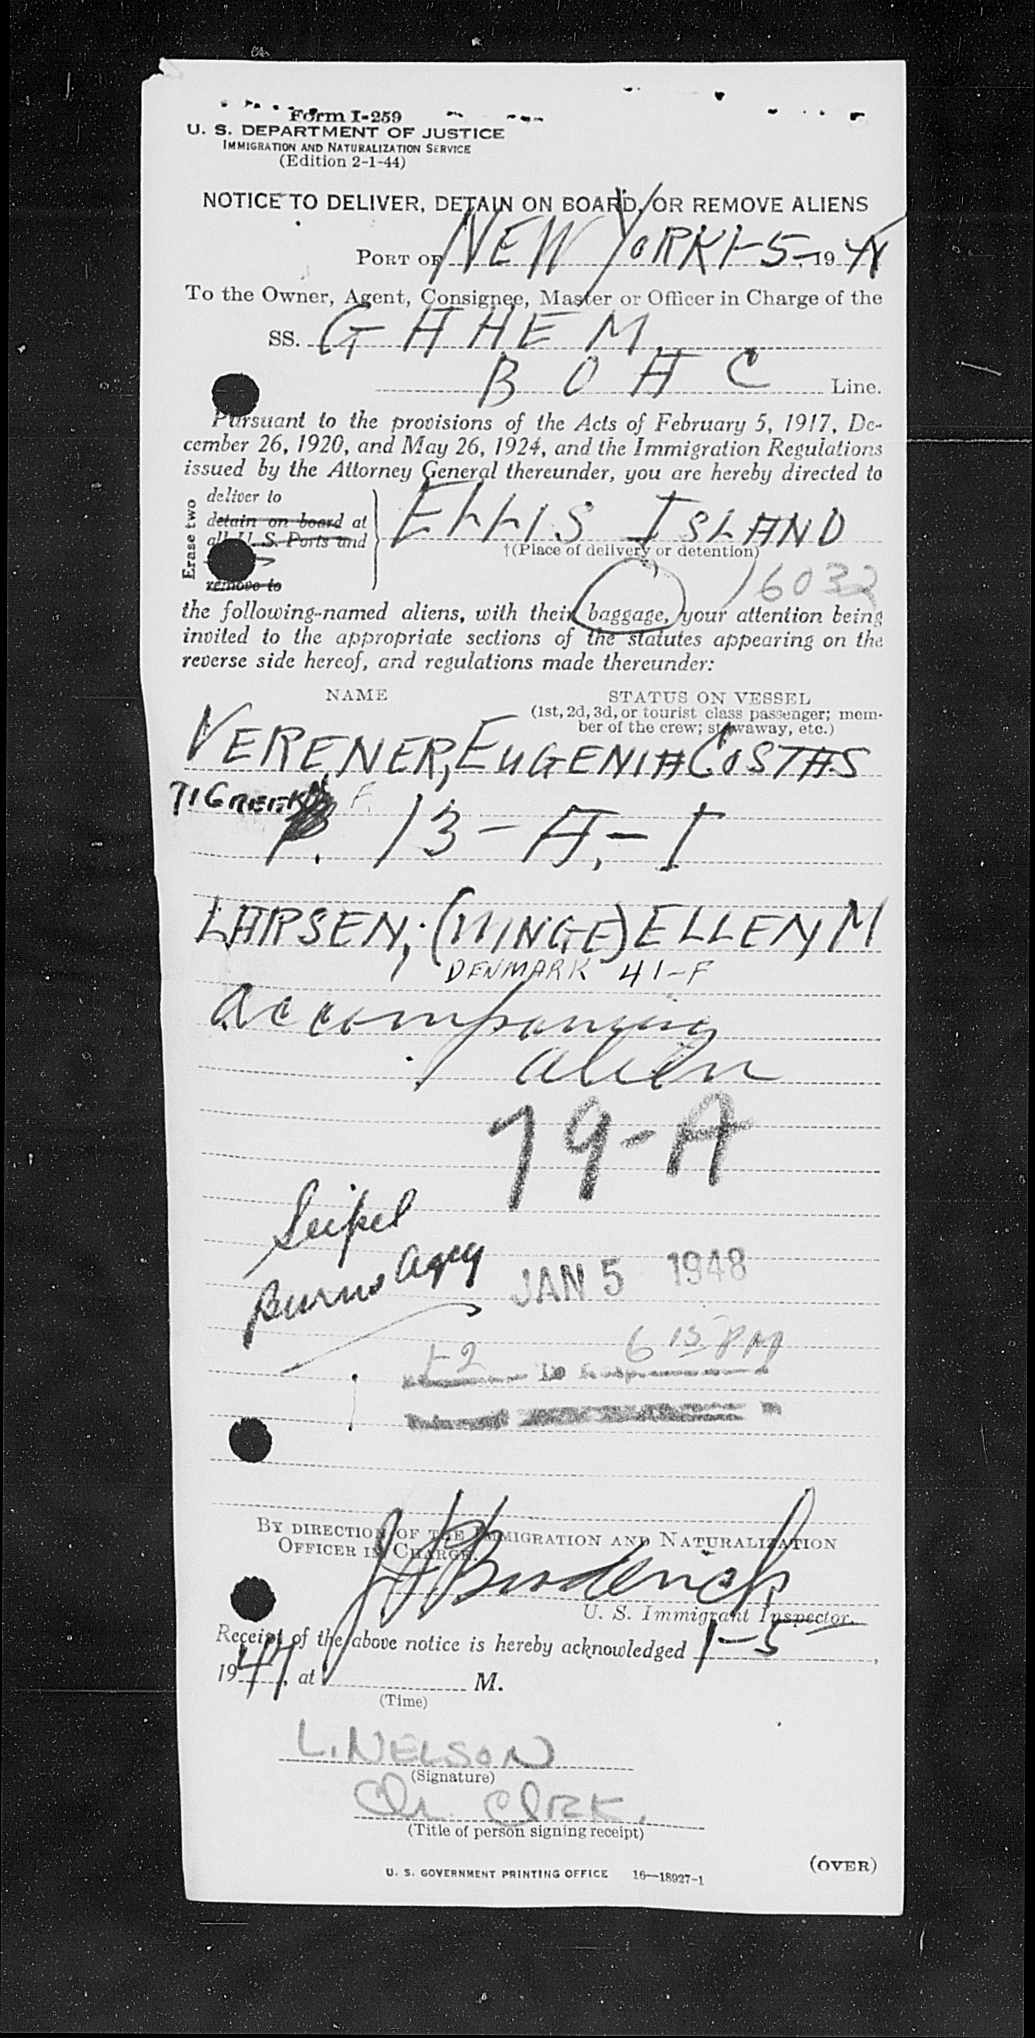 Form I-259
U. S. DEPARTMENT OF JUSTICE
IMMIGRATION AND NATURALIZATION SERVICE
(Edition 2-1-44)
NOTICE TO DELIVER, DETAIN ON BOARD, OR REMOVE ALIENS
PORT OF NEW YORK 1-5-, 19 48
To the Owner, Agent, Consignee, Master or Officer in Charge of the
SS. G A H E M.
B O A C Line.
Pursuant to the provisions of the Acts of February 5, 1917, De-
cember 26, 1920, and May 26, 1924, and the Immigration Regulations
issued by the Attorney General thereunder, you are hereby directed to
Erase two
deliver to
detain on board at
all U. S. Ports and
remove to
ELLIS ISLAND
†(Place of delivery or detention)
16032
the following-named aliens, with their baggage, your attention being
invited to the appropriate sections of the statutes appearing on the
reverse side hereof, and regulations made thereunder:
NAME STATUS ON VESSEL
(1st, 2d, 3d, or tourist class passenger; mem-
ber of the crew; stowaway, etc.)
VERENER, EUGENIA COSTAS
71 GREEK F.
P. 13-A,-I
LARSEN, (WINGE) ELLEN M
DENMARK 41-F
accompanying
alien
79-A
Seipel
Burns Agcy
JAN 5 1948
6 15 PM
BY DIRECTION OF THE IMMIGRATION AND NATURALIZATION
OFFICER IN CHARGE.
Broderick
U. S. Immigrant Inspector.
Receipt of the above notice is hereby acknowledged 1-5,
19 , at M.
(Time)
L. NELSON
(Signature)
Ch. ClRK.
(Title of person signing receipt)
(OVER)
U. S. GOVERNMENT PRINTING OFFICE 16—18927-1